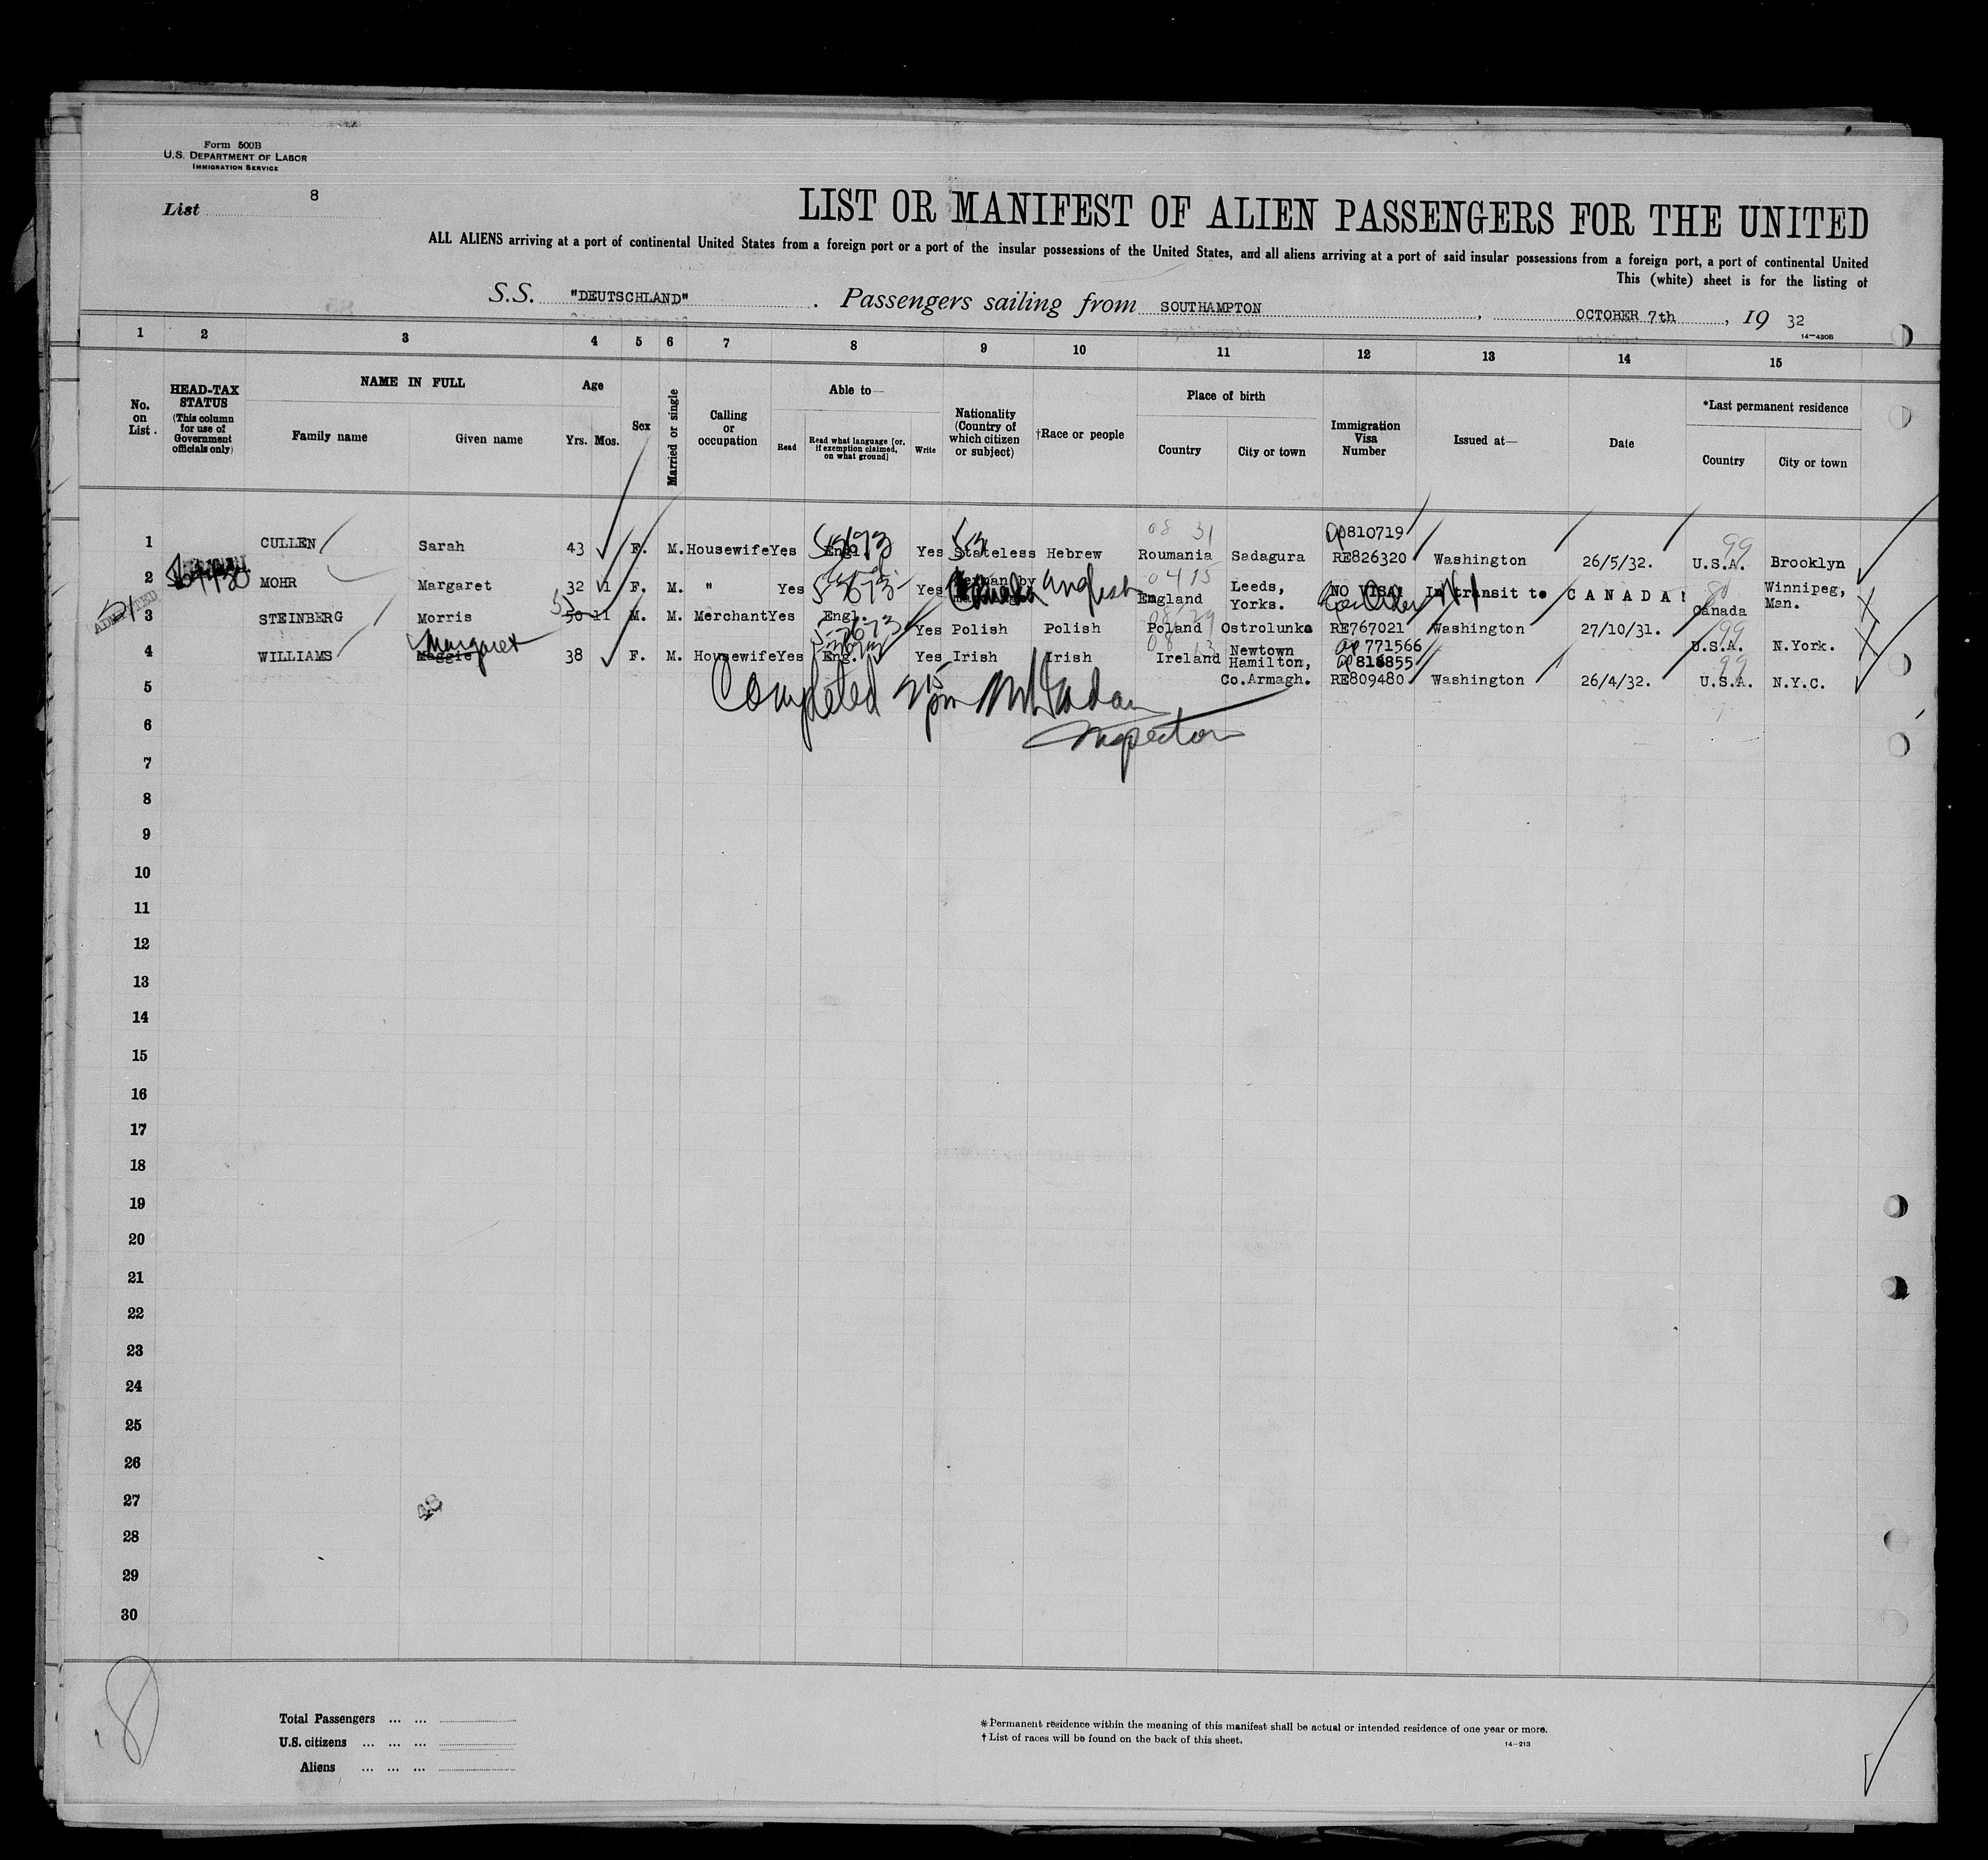 Form 500B
U.S. DEPARTMENT OF LABOR
IMMIGRATION SERVICE
List 8
LIST OR MANIFEST OF ALIEN PASSENGERS FOR THE UNITED
ALL ALIENS arriving at a port of continental United States from a foreign port or a port of the insular possessions of the United States, and all aliens arriving at a port of said insular possessions from a foreign port, a port of continental United
This (white) sheet is for the listing of
S.S. "DEUTSCHLAND" . Passengers sailing from SOUTHAMPTON , OCTOBER 7th , 19 32
14-430B
1 2 3 4 5 6 7 8 9 10 11 12 13 14 15
No. on List.
HEAD-TAX STATUS (This column for use of Government officials only)
NAME IN FULL
Family name
Given name
Age
Yrs. Mos.
Sex
Married or single
Calling or occupation
Able to—
Read
Read what language [or, if exemption claimed, on what ground]
Write
Nationality (Country of which citizen or subject)
†Race or people
Place of birth
Country
City or town
Immigration Visa Number
Issued at—
Date
*Last permanent residence
Country
City or town
08 31
810719
99
1 CULLEN Sarah 43 F. M. Housewife Yes Engl. Yes Stateless Hebrew Roumania Sadagura RE826320 Washington 26/5/32. U.S.A. Brooklyn
2 MOHR Margaret 32 F. M. " Yes Yes German by English England Leeds, Yorks. NO VISA! In transit to CANADA! Canada Winnipeg, Man.
3 STEINBERG Morris 50 11 M. M. Merchant Yes Engl. Yes Polish Polish Poland Ostrolunka RE767021 Washington 27/10/31. U.S.A. N.York.
Margaret
771566
99
4 WILLIAMS Maggie 38 F. M. Housewife Yes Eng. Yes Irish Irish Ireland Newtown Hamilton, Co.Armagh. 818855 RE809480 Washington 26/4/32. U.S.A. N.Y.C.
5
Completed
6
Inspector
7
8
9
10
11
12
13
14
15
16
17
18
19
20
21
22
23
24
25
26
27
28
29
30
8
Total Passengers ... ...
U.S. citizens ... ... ...
Aliens ... ... ...
* Permanent residence within the meaning of this manifest shall be actual or intended residence of one year or more.
† List of races will be found on the back of this sheet.
14-213